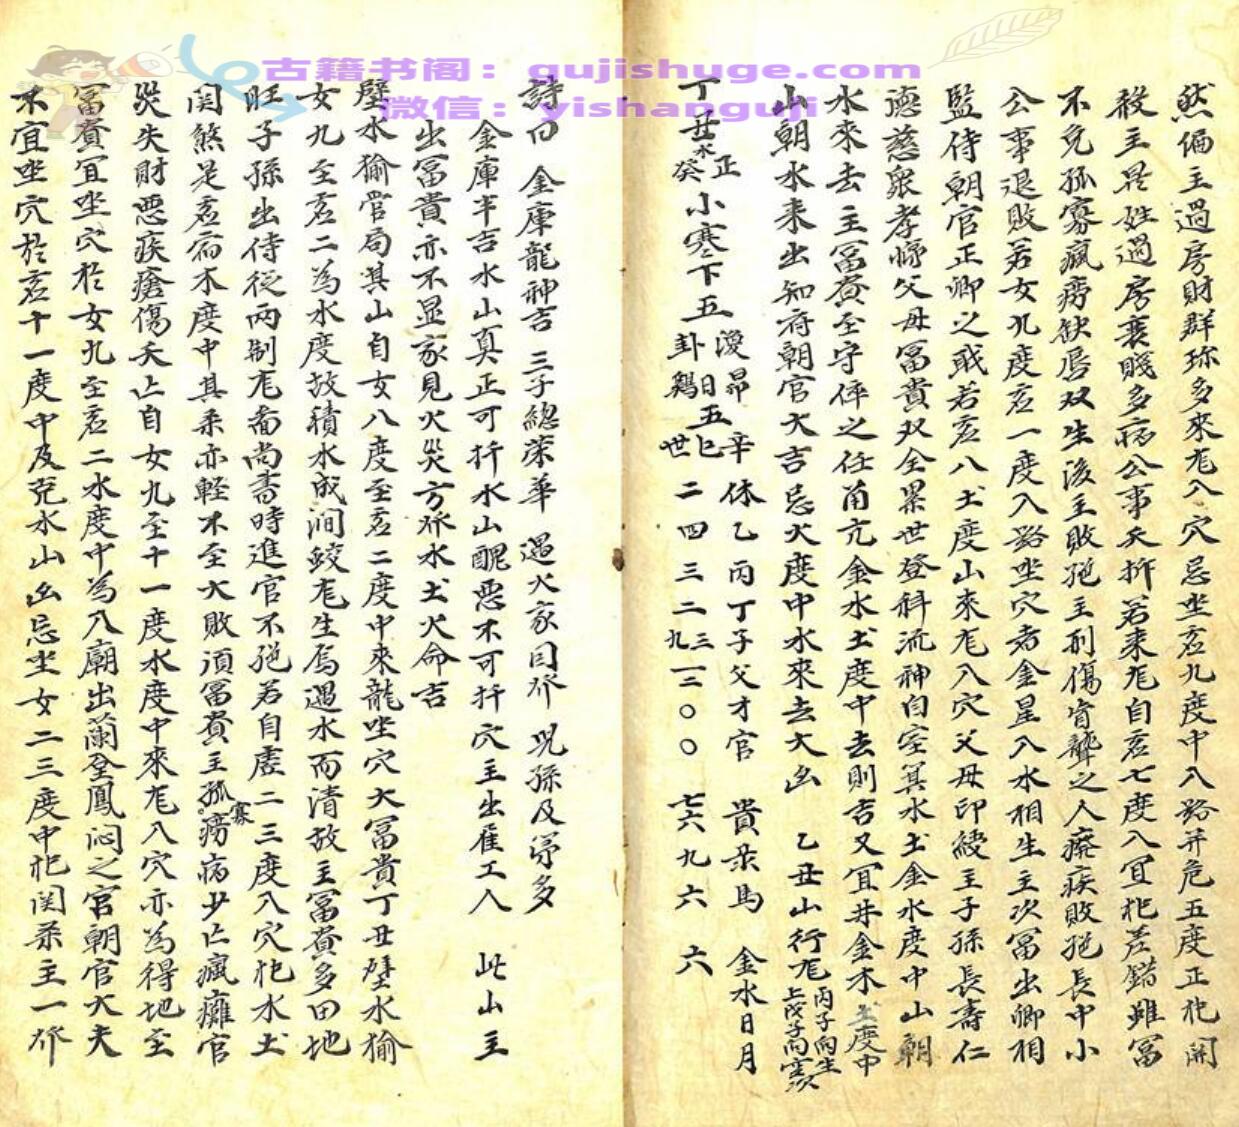 古籍书阁：gujishuge.com
微信：yishanguji
然偏主過房財群珎多來尨入穴忌坐危九度中八路并危五度正犯開
殺主異姓過房衰賤多病公事夭折若来尨自危七度入宜犯差錯雖富
不免孤寡瘋癆缺唇双生後主敗絕主刑傷盲聾之人癈疾敗絕長中小
公事退敗若女九度危一度入路坐穴者金星入水相生主次富出卿相
監侍朝官正卿之戢若危八土度山來尨入穴父母印綬主子孫長壽仁
德慈眾孝悌父母冨貴双全累世登科流神自室箕水土金水度中山朝
水來去主冨貴至守倅之任角亢金水土度中去則吉又宜井金木土度中
山朝水来出知府朝官大吉忌火度中水來去大凶 乙丑山行尨丙子向生上戊子向
丁丑水癸正小寒下五 卦鷄 日五 世巳辛 休乙丙丁子父才官 貴 馬 金水日月
二四三二 九三 一二〇〇 七六九六 六
詩曰 金庫龍神吉 三子總榮華 遇火家囙 児孫及第多
金庫半吉水山真正可扦水山醜惡不可扦穴主出雇工人 此山主
出冨貴亦不显家見火災方 水土火命吉
壁水㺄管局其山自女八度至危二度中來龍坐穴大冨貴丁丑壁水㺄
女九至危二為水度故積水成澗蛟尨生焉遇水而清故主冨貴多田地
旺子孫出侍從兩制尨啚尚書時進官不絕若自虛二三度入穴犯水土
関煞是危宿木度中其柔亦軽不至大敗須冨貴主孤寡癆病少亡瘋癱官
災失財惡疾瘡傷夭亡自女九至十一度水度中來尨入穴亦為得地至
冨貴宜坐穴於女九至危二水度中為入廟出蘭臺鳳閣之官朝官大夫
不宜坐穴於危十一度中及兌水山凶忌坐女二三度中犯関 主一